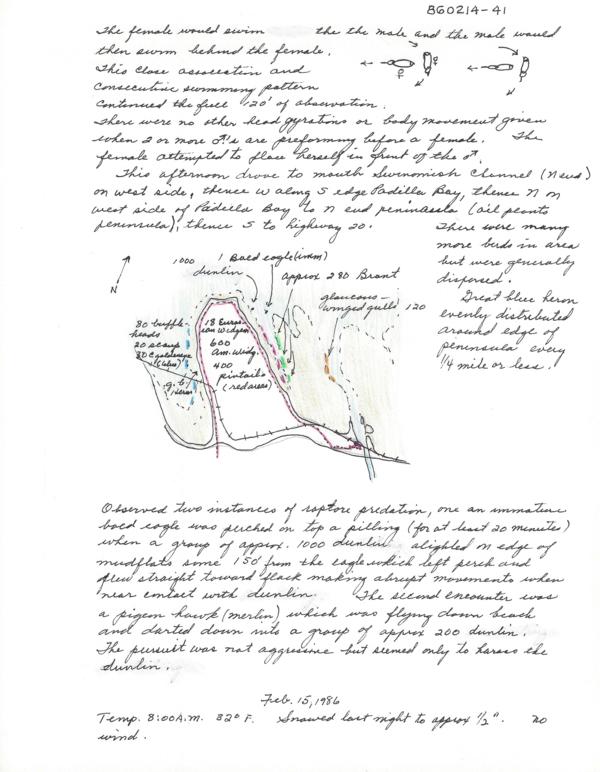 860214-41
The female would swim the the male and the male would
then swim behind the female.
This close association and
consecutive swimming pattern
continued the full 120' of observation.
There were no other head gyrations or body movement given
when 2 or more ♂'s are preforming before a female. The
female attempted to place herself in front of the ♂.
This afternoon drove to mouth Swinomish Channel (N end)
on west side, thence W along S edge Padilla Bay, thence N on
west side of Padilla Bay to N end peninsula (oil plants
peninsula), thence S to highway 20.
There were many
more birds in area
but were generally
dispersed.
Great blue heron
evenly distributed
around edge of
peninsula every
1/4 mile or less.
N
1000
dunlin
1 Bald eagle (imm)
Approx 280 Brant
glaucous-
winged gulls 120
80 buffle-
heads
20 scaup
80 C goldeneye
(blue)
g. b.
heron
18 Euras-
ian Widgeon
600
Am. Widg.
400
pintails
(red areas)
Observed two instances of raptore predation, one an immature
bald eagle was perched on top a pilling (for at least 20 minutes)
when a group of approx. 1000 dunlin alighted on edge of
mudflats some 150' from the eagle which left perch and
flew straight toward flock making abrupt movements when
near contact with dunlin. The second encounter was
a pigeon hawk (merlin) which was flying down beach
and darted down into a group of approx 200 dunlin.
The pursuit was not aggressive but seemed only to harass the
dunlin.
Feb. 15, 1986
Temp. 8:00 A.M. 32° F. Snowed last night to approx 1/2". no
wind.